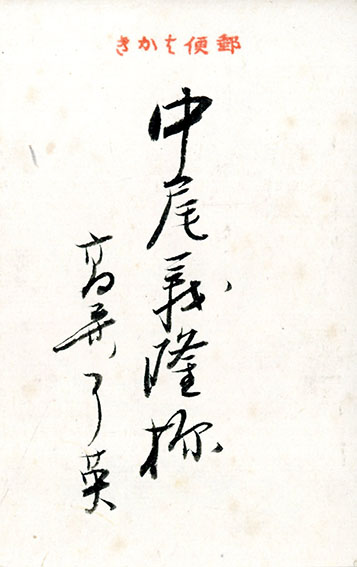 郵便はかき
中尾義隆様
高了英